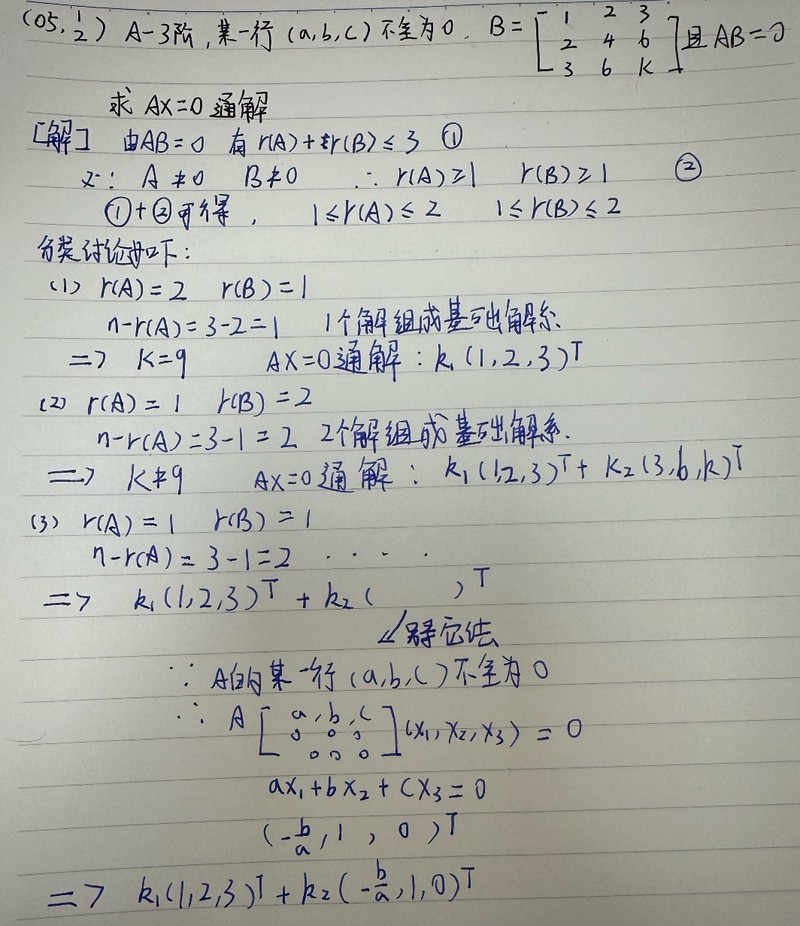 (05, 1/2) A-3阶, 某一行 (a,b,c) 不全为0. B= [1 2 3
2 4 6
3 6 K] 且 AB=0
求 AX=0 通解
[解] 由AB=0 有 r(A)+r(B)≤3 ①
又∵ A≠0 B≠0 ∴ r(A)≥1 r(B)≥1 ②
①+②可得, 1≤r(A)≤2 1≤r(B)≤2
分类讨论如下:
(1) r(A)=2 r(B)=1
n-r(A)=3-2=1 1个解组成基础解系.
=> K=9 AX=0通解: k₁(1,2,3)ᵀ
(2) r(A)=1 r(B)=2
n-r(A)=3-1=2 2个解组成基础解系.
=> K≠9 AX=0通解: k₁(1,2,3)ᵀ+k₂(3,6,k)ᵀ
(3) r(A)=1 r(B)=1
n-r(A)=3-1=2 ····
=> k₁(1,2,3)ᵀ+k₂( )ᵀ
∵ A的某一行(a,b,c)不全为0
∴ A [a,b,c
0 0 0
0 0 0] (x₁,x₂,x₃)=0
ax₁+bx₂+cx₃=0
(-b/a, 1, 0)ᵀ
=> k₁(1,2,3)ᵀ+k₂(-b/a,1,0)ᵀ